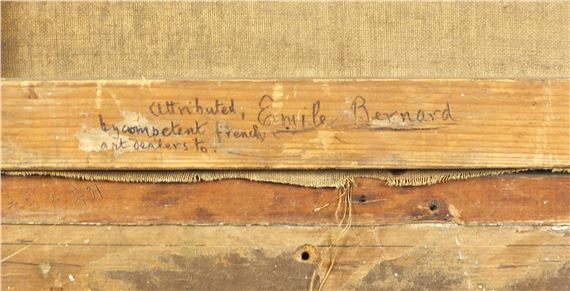 Attributed, Emile Bernard
by competent french,
art dealers to.